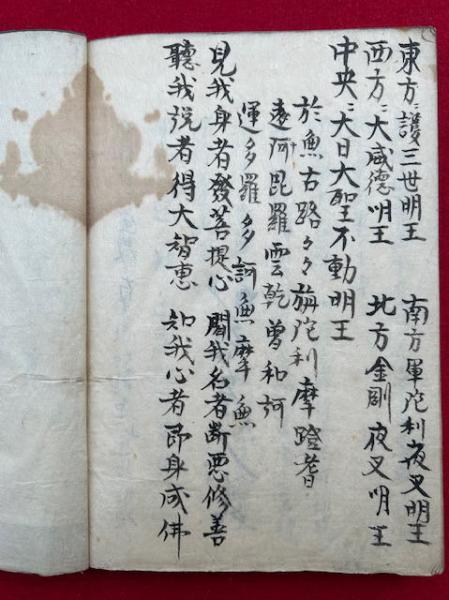 東方ニ護三世明王　南方軍陀利夜叉明王
西方ニ大威德明王　北方金剛夜叉明王
中央ニ大日大聖不動明王
於魚古路々々旃陀利摩蹬耆
遠阿毘羅雲乾曽和訶
運多羅多訶魚摩魚
見我身者發菩提心　聞我名者断悪修善
聽我説者得大智恵　知我心者即身成佛